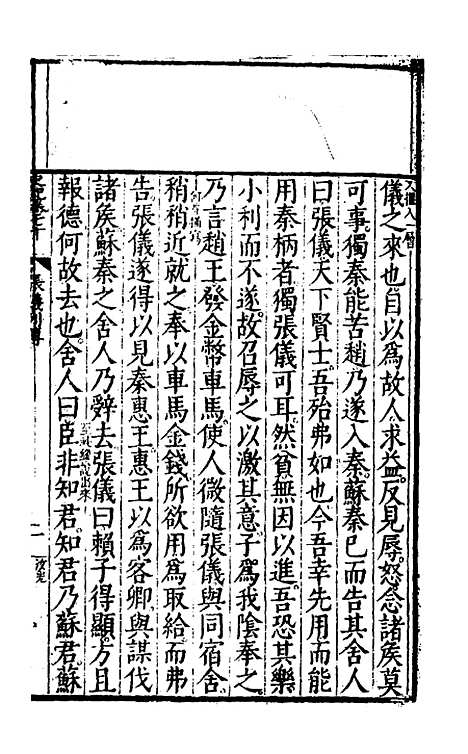 儀之來也自以爲故人求益反見辱怒念諸侯莫
可事獨秦能苦趙乃遂入秦蘇秦已而告其舍人
曰張儀天下賢士吾殆弗如也今吾幸先用而能
用秦柄者獨張儀可耳然貧無因以進吾恐其樂
小利而不遂故召辱之以激其意子爲我陰奉之
乃言趙王發金幣車馬使人微隨張儀與同宿舍
稍稍近就之奉以車馬金錢所欲用爲取給而弗
告張儀遂得以見秦惠王惠王以爲客卿與謀伐
諸侯蘇秦之舍人乃辤去張儀曰賴子得顯方且
報德何故去也舍人曰臣非知君知君乃蘇君蘇
張儀列傳